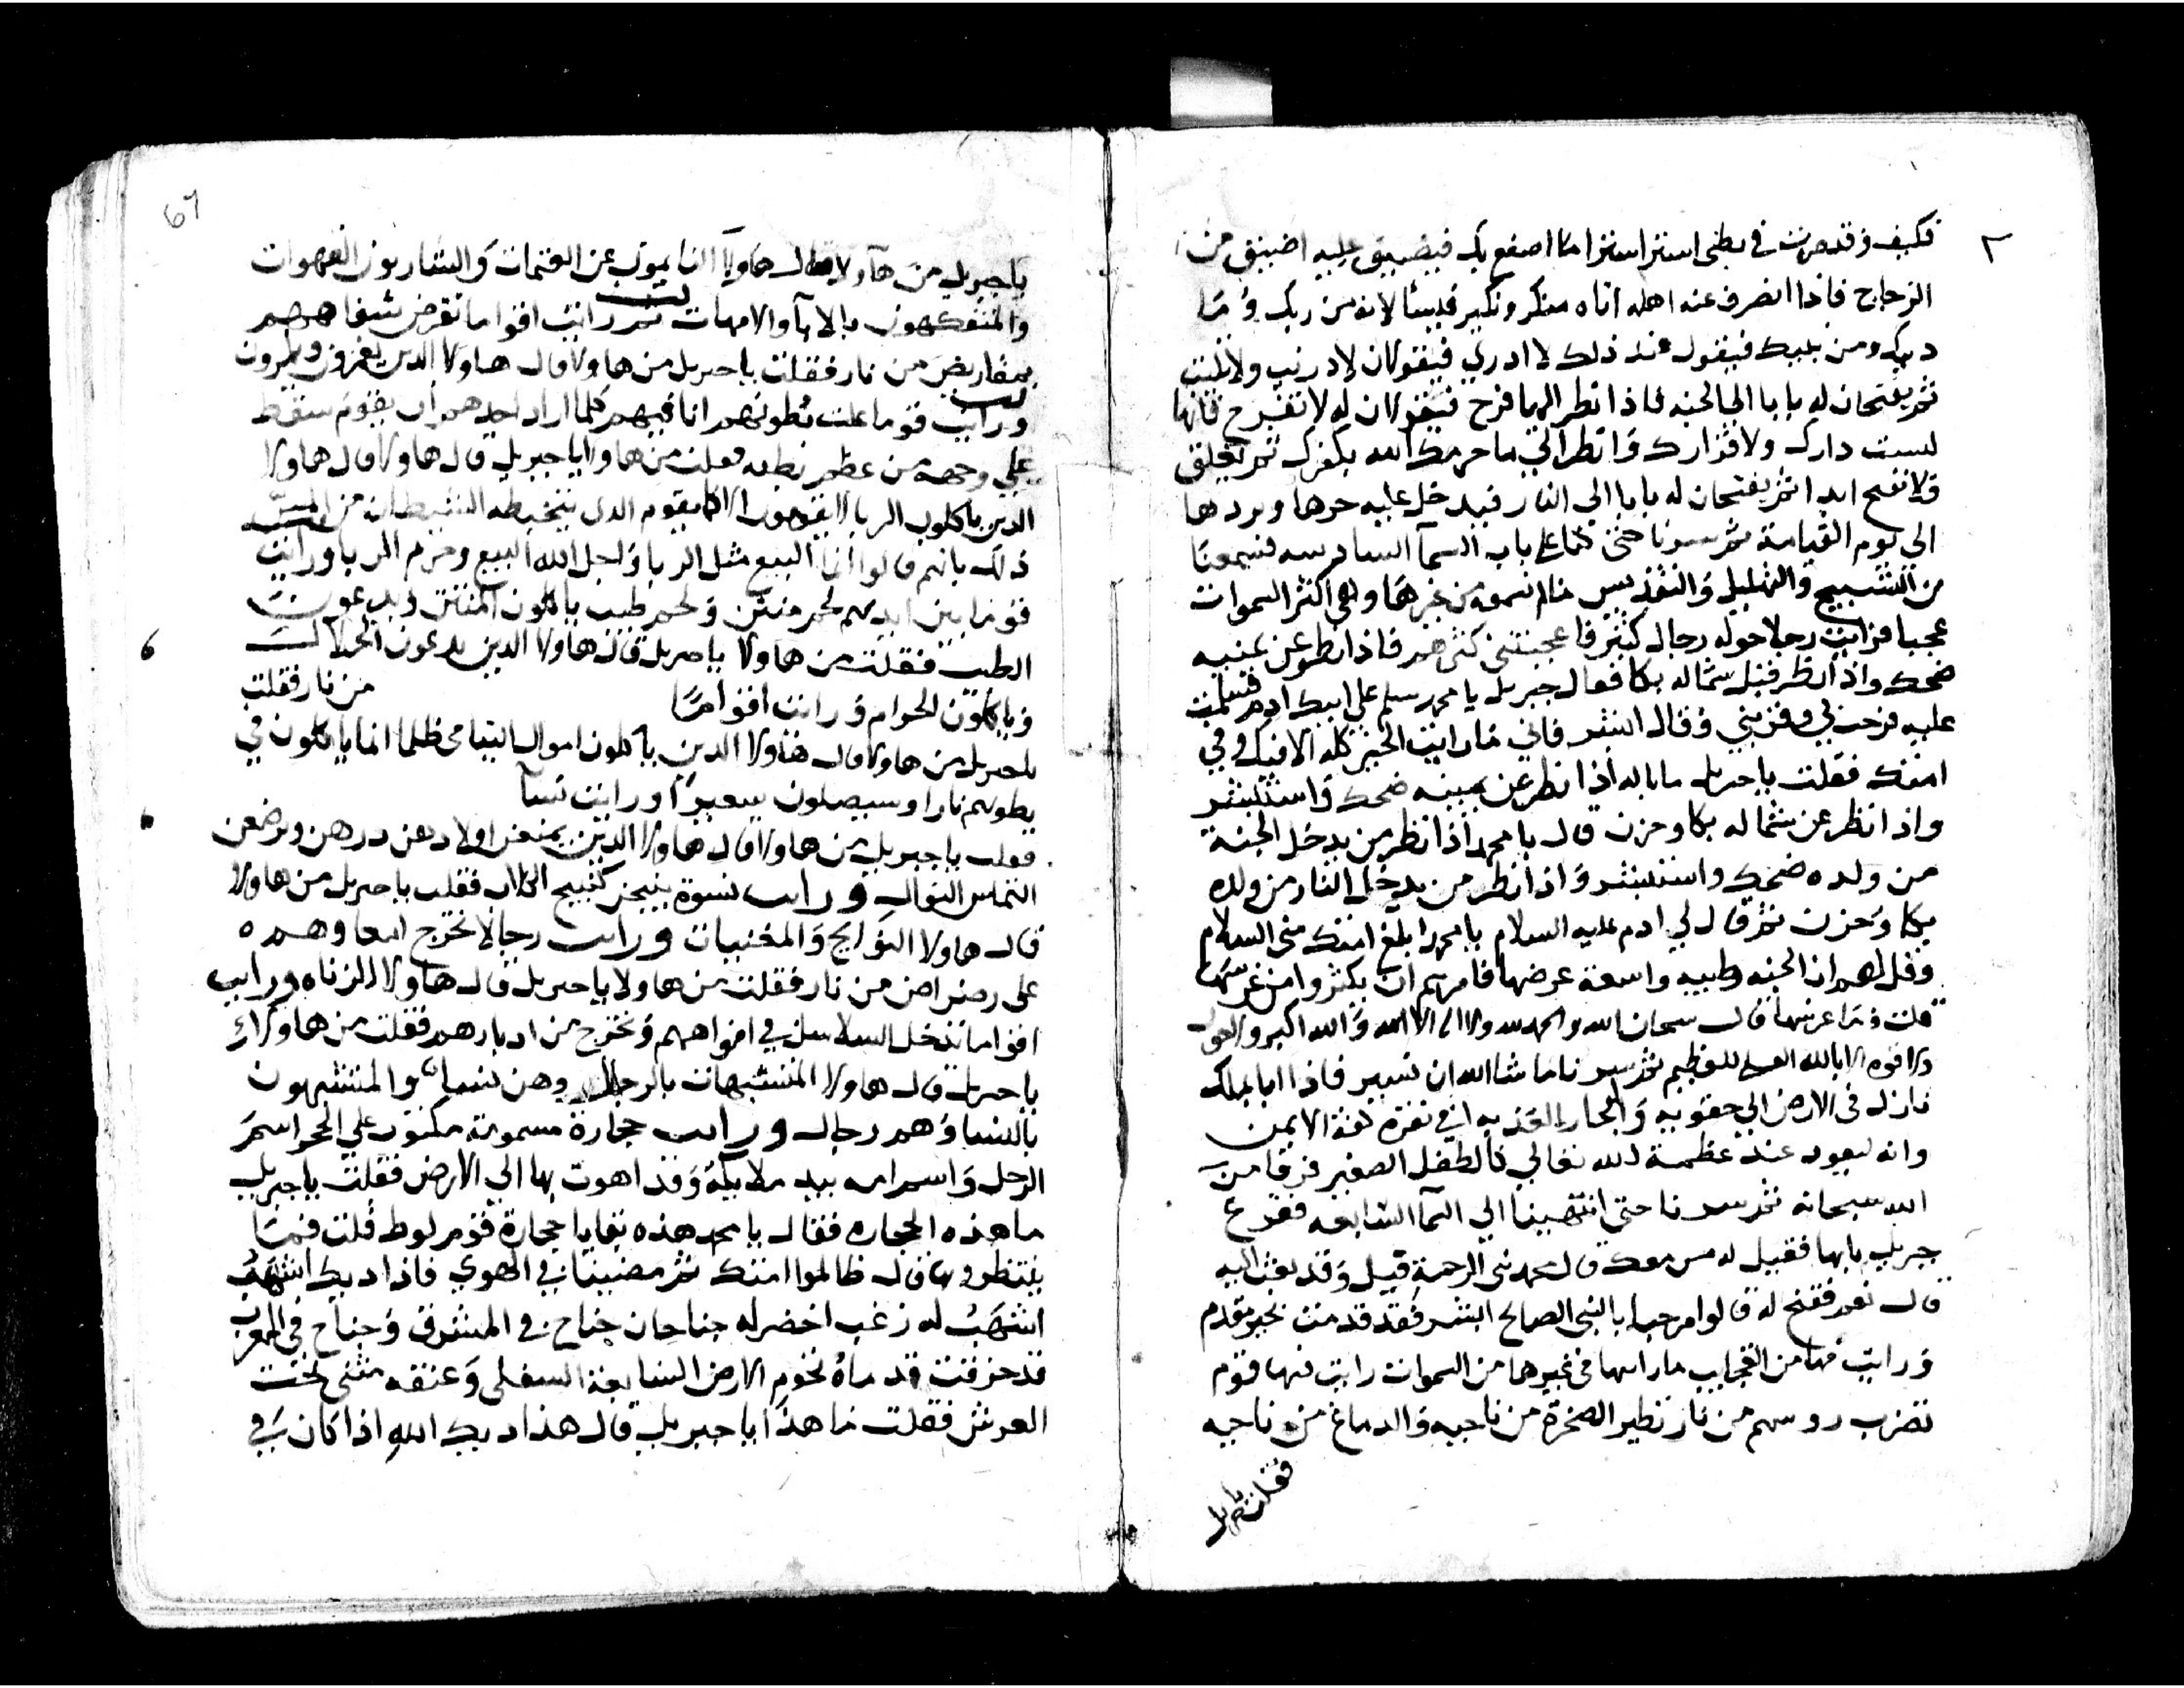 فكيف وقد صرت في بطني استنزا استنزا ما اصنع بك فيضيق عليه اضيق من
الزجاج فاذا انصرف عنه اهله اتاه منكر ونكير فيسالانه من ربك وما
دينك ومن نبيك فيقول عند ذلك لا ادري فيقولان لا دريت ولا تليت
ثم يفتحان له بابا الي الجنه فاذا نظر اليها فرح فيقولان له لا تفرح فانها
ليست دارك ولا قرارك وانظر الي ما حرمك الله بكفرك ثم تغلق
فلا تفتح ابدا ثم يفتحان له بابا الي النار فيدخل عليه حرها وبردها
الي يوم القيامة ثم سرنا حتى كنا علي باب السمآ السادسه فسمعنا
من التسبيح والتهليل والتقديس مالم نسمعه من غيرها وهي اكثر السموات
عجبا فرايت رجلا حوله رجال كثير فاعجبتني كثرهم فاذا نظر عن يمينه
ضحك واذا نظر قبل شماله بكا فقال جبريل يا محمد سلم علي ابيك ادم فسلمت
عليه فرحب بي وقربني وقال ابشر فاني ما رايت الخير كله الا فيك وفي
امتك فقلت يا جبريل ما باله اذا نظر عن يمينه ضحك واستبشر
واذا نظر عن شماله بكا وحزن قال يا محمد اذا نظر من يدخل الجنة
من ولده ضحك واستبشر واذا نظر من يدخل النار من ولده
بكا وحزن ثم قال لي ادم عليه السلام يا محمد ابلغ امتك مني السلام
وقل لهم ان الجنه طيبه واسعة عرضها فامرهم ان يكثروا من غرسها
قلت وما غرسها قال سبحان الله والحمد لله ولا اله الا الله والله اكبر ولا حول
ولا قوه الا بالله العلي العظيم ثم سرنا ما شا الله ان نسير فاذا انا بملك
نازل في الارض الي حقويه والبحار العذبه في نقرة كفه الايمن
وانه ليعود عند عظمة الله تعالي كالطفل الصغير فرقا من
الله سبحانه ثم سرنا حتى انتهينا الي السمآ السابعه فقرع
جبريل بابها فقيل له من معك قال محمد نبي الرحمة قيل وقد بعث اليه
قال نعم ففتح له قالوا مرحبا بالنبي الصالح ابشر فقد قدمت بخير مقدم
ورايت فيها من العجايب ما رايتها في غيرها من السموات رايت فيها قوم
تضرب روسهم من نار تطير الصخرة من ناحيه والدماغ من ناحيه
فقلت يا جبريل
يا جبريل من هاولا قال هاولا النايمون عن العتمات والشاربون القهوات
والمتفكهون بالابا والامهات ثم رايت اقواما تقرض شفاههم
بمقاريض من نار فقلت يا جبريل من هاولا قال هاولا الدين يغمزون ويلمزون
ورايت قوما علت بطونهم انافيهم كلما اراد احدهم ان يقوم سقط
علي وجهه من عظم بطنه فقلت من هاولا يا جبريل قال هاولا
الدين ياكلون الربا لا يقومون الا كما يقوم الدي يتخبطه الشيطان من المس
ذلك بانهم قالوا انما البيع مثل الربا واحل الله البيع وحرم الربا ورايت
قوما بين ايديهم لحم منتن ولحم طيب ياكلون المنتن ويدعون
الطيب فقلت من هاولا يا جبريل قال هاولا الدين يدعون الحلال
وياكلون الحرام ورايت اقواما من نار فقلت
يا جبريل من هاولا قال هاولا الدين ياكلون اموال اليتامى ظلما انما ياكلون في
بطونهم نارا وسيصلون سعيرا ورايت نسآ
فقلت يا جبريل من هاولا قال هاولا الدين يمنعن اولادهن درهن ويرضعن
التماس النوال ورايت نسوة ينبحن كنبيح الكلاب فقلت يا جبريل من هاولا
قال هاولا النوايح والمغنيات ورايت رجالا تخرج امعاوهم
على رضراض من نار فقلت من هاولا يا جبريل قال هاولا الزناه ورايت
اقواما تدخل السلاسل في افواههم وتخرج من ادبارهم فقلت من هاولاء
يا جبريل قال هاولا المتشبهات بالرجال وهن نسا والمتشبهون
بالنسا وهم رجال ورايت حجارة مسمومة مكتوب علي الحجر اسم
الرجل واسم امه بيد ملايكة وقد اهوت بها الي الارض فقلت يا جبريل
ما هذه الحجاره فقال يا محمد هذه بقايا حجارة قوم لوط قلت فما
ينتظرون بها قال ظالموا امتك ثم مضينا في الهوي فاذا ديك اشهب
اشهب له زغب اخضر له جناحان جناح في المشرق وجناح في المغرب
قد خرقت قدماه تخوم الارض السابعة السفلى وعنقه مثنى تحت
العرش فقلت ما هذا يا جبريل قال هذا ديك الله اذا كان في